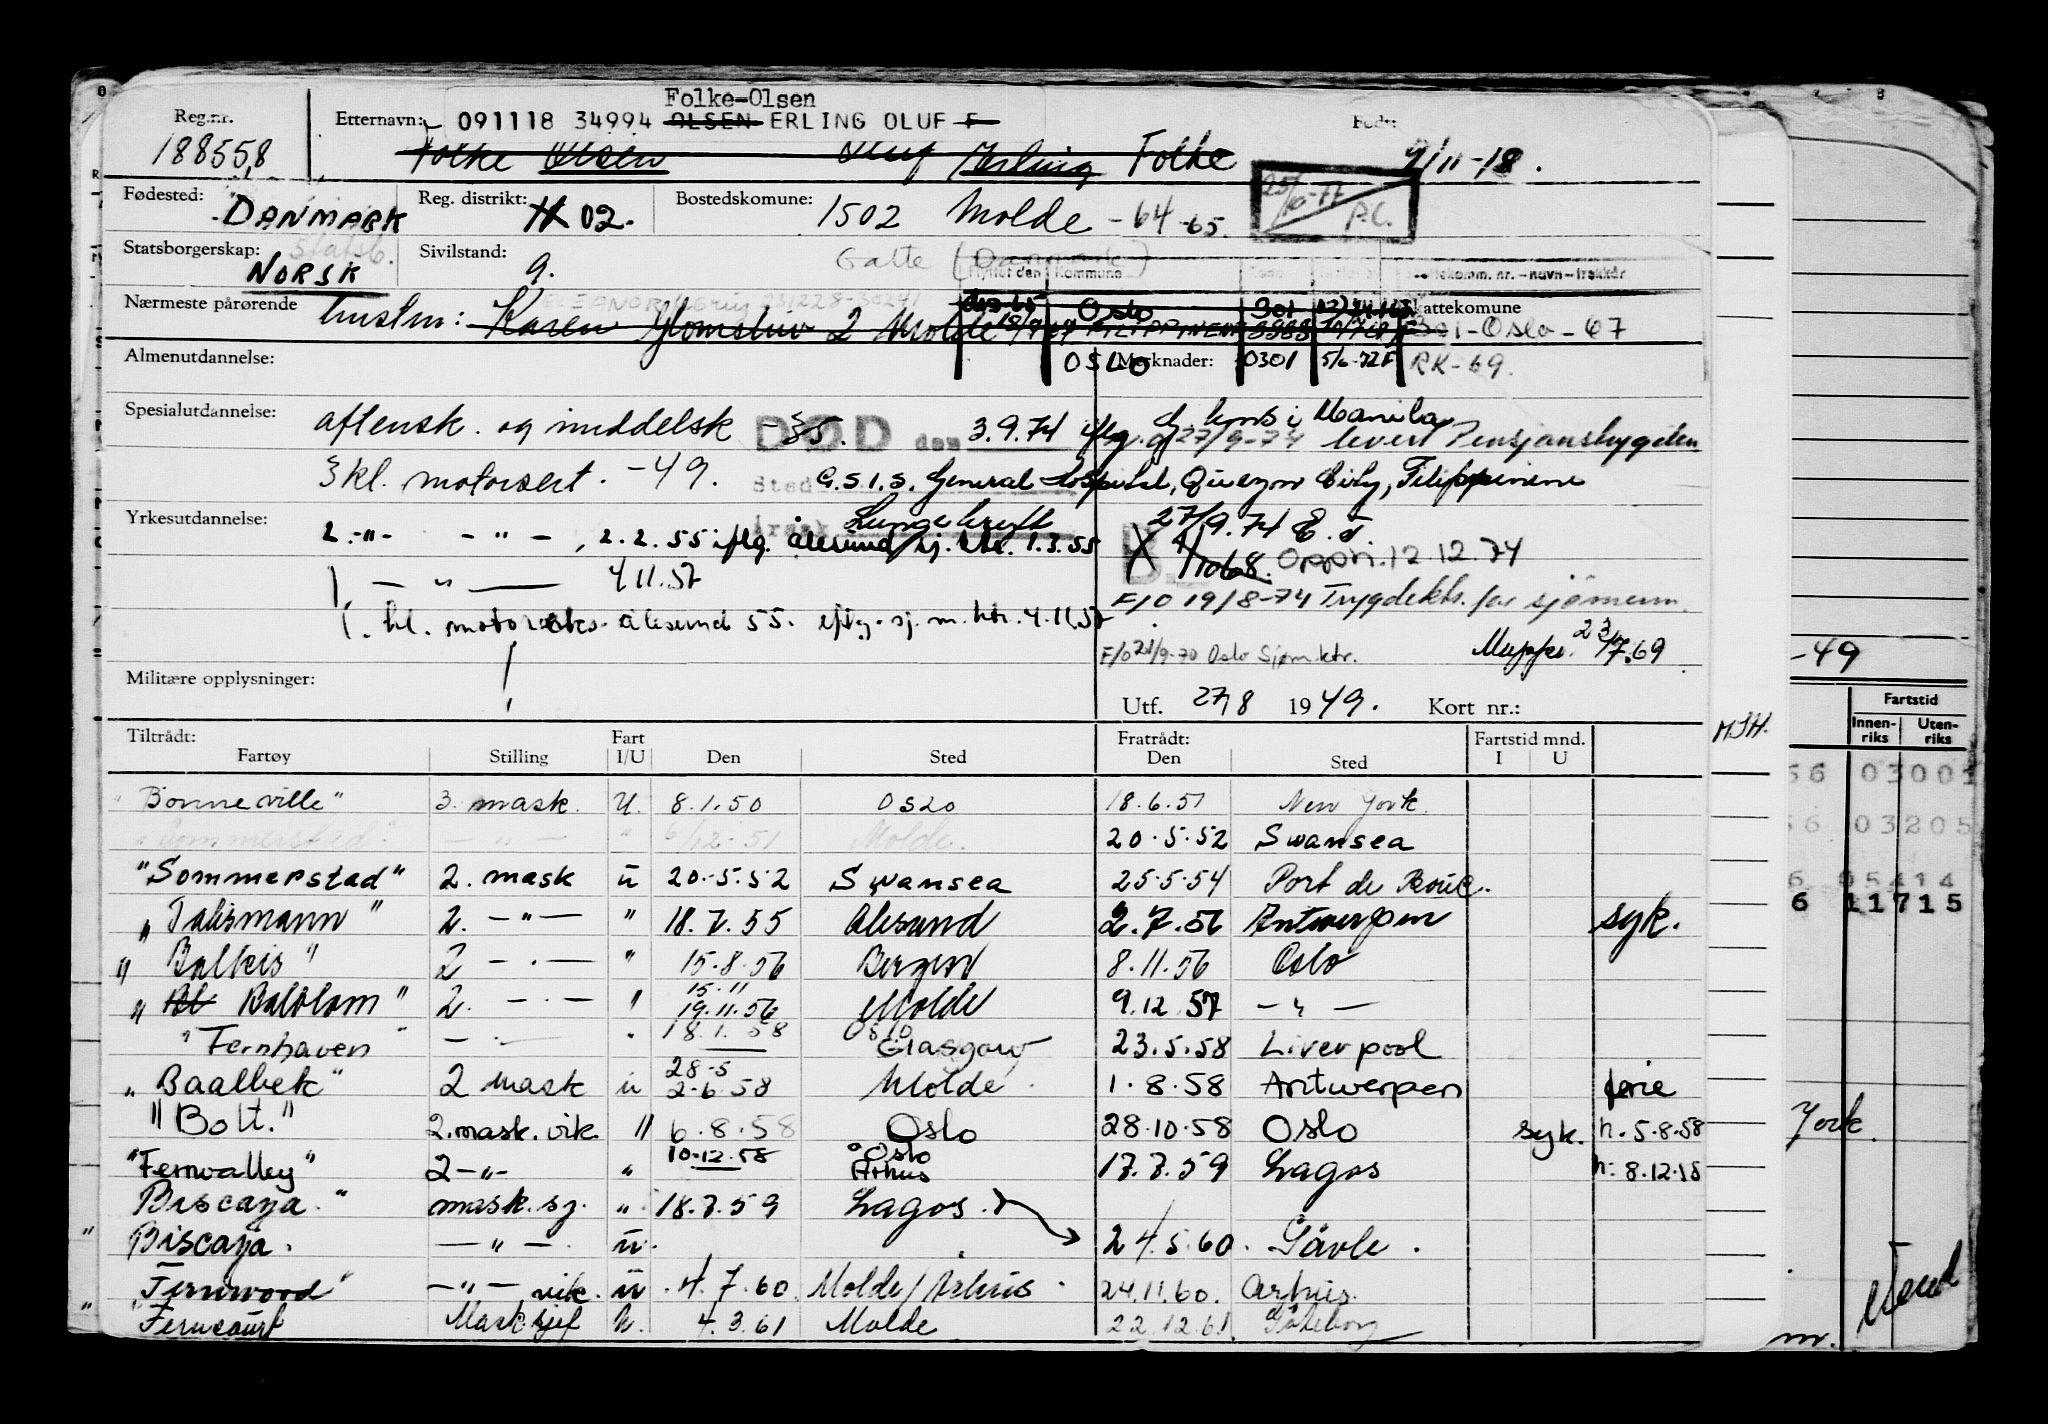 Folke-Olsen
Reg.nr. Etternavn: 091118 34994 OLSEN ERLING OLUF F Født:
188558 Folke Olsen Oluf Erling Folke 9/11-18.
Fødested: DANMARK Reg. distrikt: 02. Bostedskommune: 1502 Molde -64-65. 25/10-77 P.C.
Statsborgerskap: Statsb. Sivilstand: Gatte (Danmark)
NORSK g. Flyttet den Kommune Skattekomm. nr. - navn - trekkår
Nærmeste pårørende hustru: Karen 2 Molde Oslo 301 Skattekommune
18/9 FILIPPINENE 301-Oslo-67
Almenutdannelse: OSLO Merknader: 0301 5/6-72F RK-69.
Spesialutdannelse: aftensk. og middelsk -35. DØD den 3.9.74 iflg. g. kons i Manila
27/9-74 Pensjonstrygden
3 kl. motorsert. -49. Sted G.S.I.S. General Hospital, Quezon City, Filippinene
Yrkesutdannelse: Årsak Lungekreft 27/9.74 E.F
2. -"- - " - , 2.2.55 iflg. ålesund sj. ktr. 1.3.55
Oppri. 12.12.74
1 — " — 4.11.57
F/O 19/8-74 Trygdekts. for sjømenn.
1. kl. ålesund 55. eftg. sj. m. ktr. 4.11.57
F/O 21/9-70 Oslo Sjøm.ktr. Mappe. 23/7.69
Militære opplysninger:
Utf. 27/8 1949. Kort nr.:
-49
Tiltrådt: Fart Fratrådt: Fartstid mnd. M.S.H. Fartstid
Fartøy Stilling I/U Den Sted Den Sted I U Innenriks Utenriks
"Bonneville" 3. mask. U. 8.1.50 OSLO 18.6.51 New York.
56 03001
"Sommerstad" — " — " 6/12-51 Molde. 20.5.52 Swansea
56 03205
"Sommerstad" 2. mask ū 20.5.52 Swansea 25.5.54 Port de Bouc.
6 05414
"Talismann" 2. — " — " 18.7.55 Ålesund 2.7.56 Antwerpen syk.
6 11715
"Balkis" 2 — . — " 15.8.56 Bergen 8.11.56 Oslo
"Bl Baldlom" 2. — . — " 15.11 19.11.56 Molde 9.12.57 — " —
"Fernhaven" — . — " 18.1.58 Oslo Glasgow 23.5.58 Liverpool
"Baalbek" 2 mask ū 28-5 2-6.58 Molde 1.8.58 Antwerpen ferie
"Bolt." 2. mask. vik. " 6.8.58 Oslo 28.10.58 Oslo syk. h. 5.8.58
York.
"Fernvalley" 2 — " — " 10.12.58 Oslo Århus 17.7.59 Lagos h. 8.12.58
Biscaya." mask. sj. " 18.7.59 Lagos.
" Biscaya. — " — . ū. 24.5.60. Gävle.
"Fernwood" — " — vik. ū 4.7.60 Molde/Århus 24.11.60. Århus.
" "Ferncourt Mask.sjef U. 4.3.61 Molde 22.12.61 Göteborg
m.